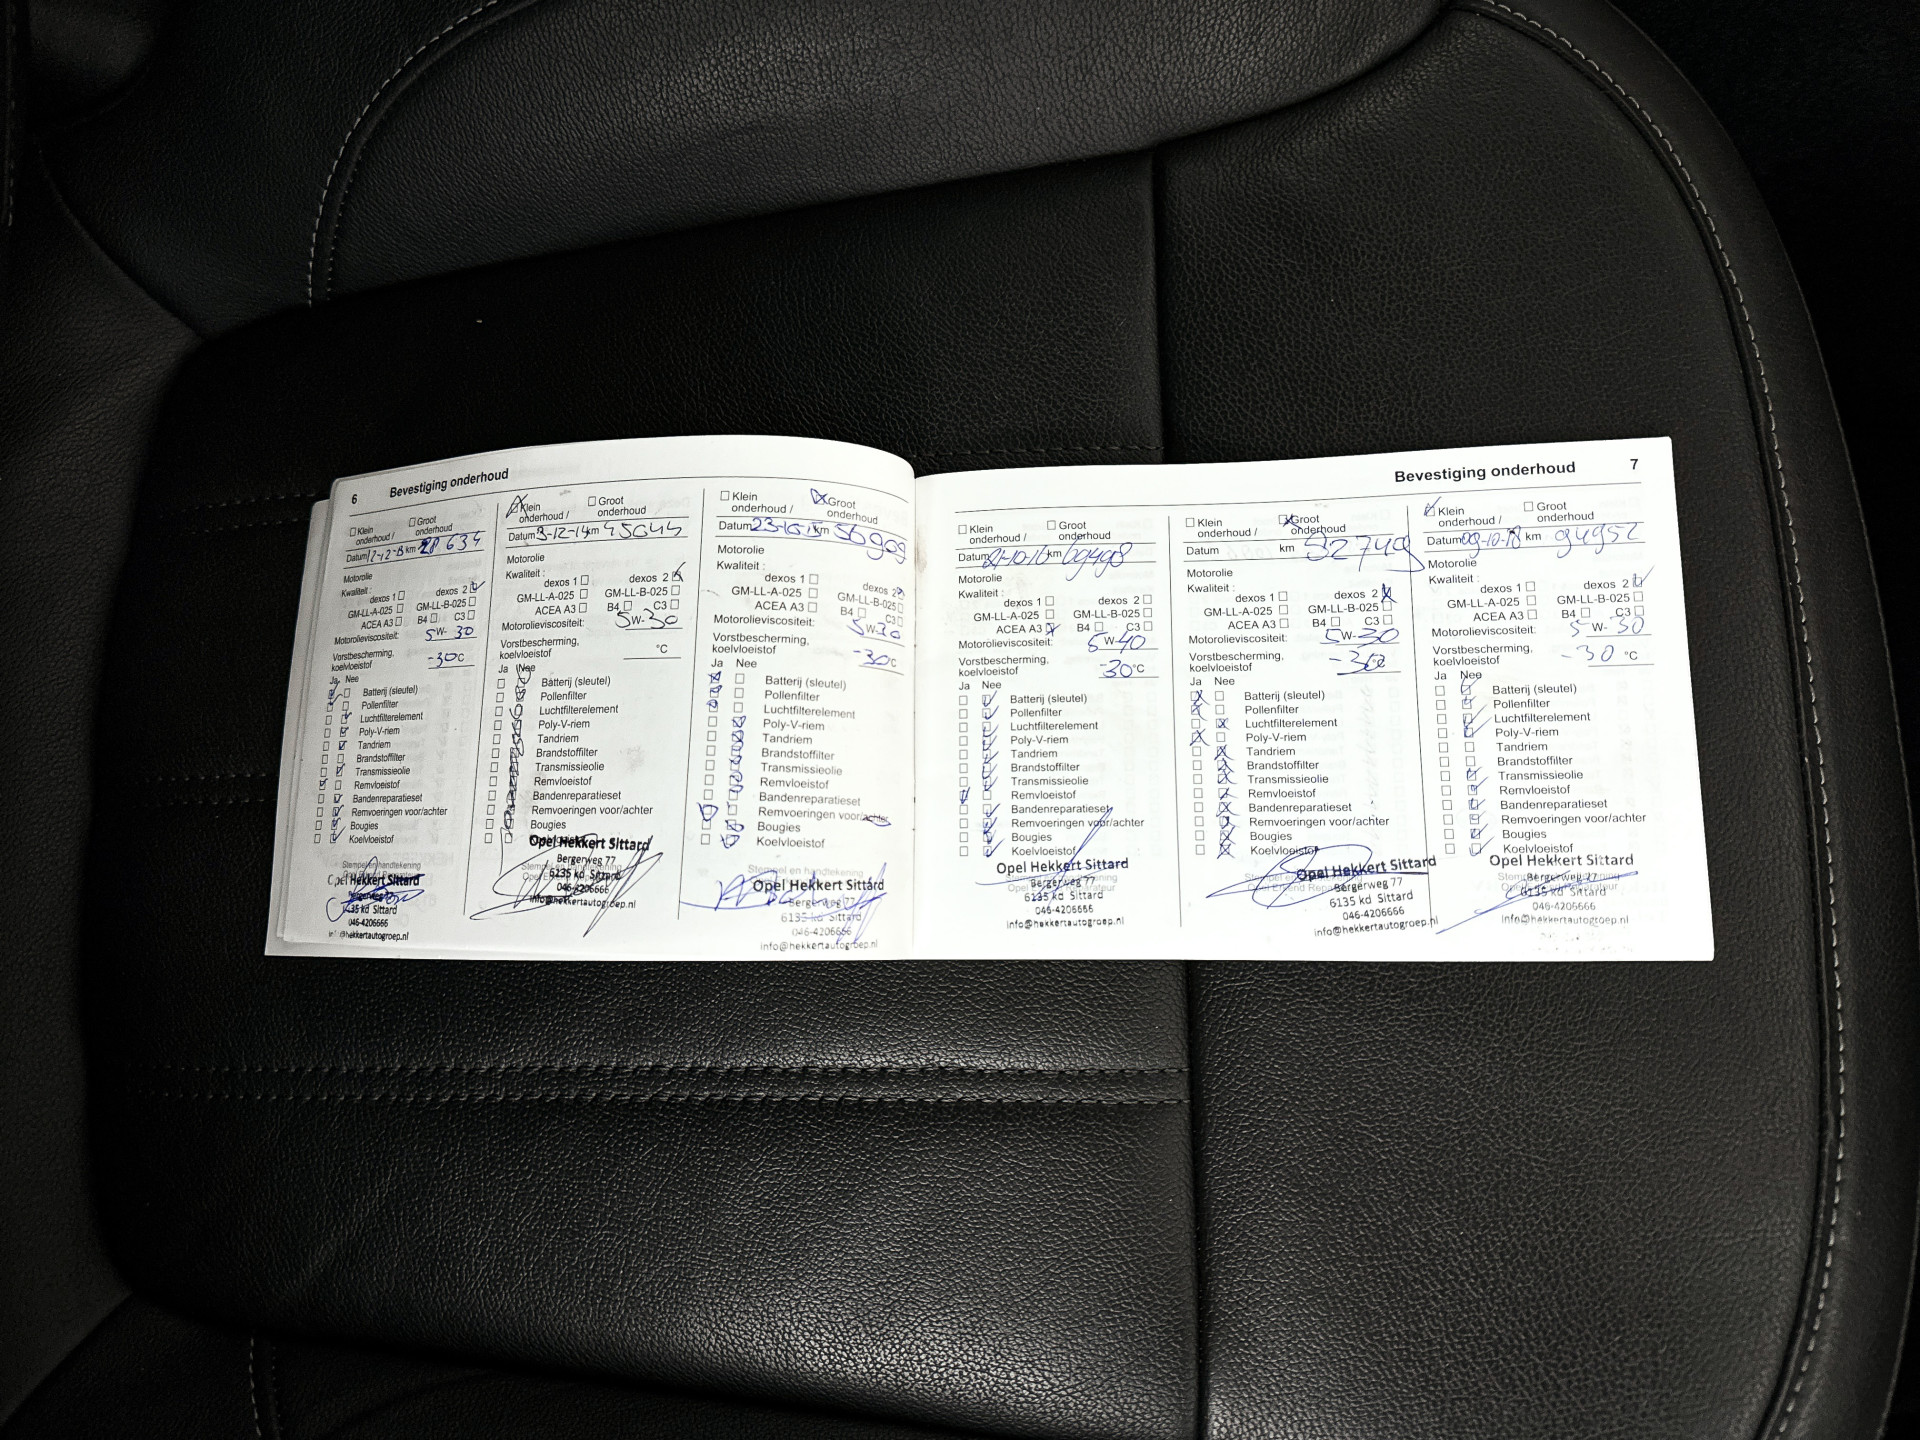 6 Bevestiging onderhoud
☐ Klein onderhoud / ☐ Groot onderhoud
Datum 12-12-13 km 28 634
Motorolie
Kwaliteit :
dexos 1 ☐ dexos 2 ☑
GM-LL-A-025 ☐ GM-LL-B-025 ☐
ACEA A3 ☐ B4 ☐ C3 ☐
Motorolieviscositeit: 5W-30
Vorstbescherming,
koelvloeistof -30°C
Ja Nee
Batterij (sleutel)
Pollenfilter
Luchtfilterelement
Poly-V-riem
Tandriem
Brandstoffilter
Transmissieolie
Remvloeistof
Bandenreparatieset
Remvoeringen voor/achter
Bougies
Koelvloeistof
Stempel en handtekening
Opel Hekkert Sittard
Bergerweg 77
6135 kd Sittard
046-4206666
info@hekkertautogroep.nl
☒ Klein onderhoud / ☐ Groot onderhoud
Datum 3-12-14 km 45044
Motorolie
Kwaliteit :
dexos 1 ☐ dexos 2 ☒
GM-LL-A-025 ☐ GM-LL-B-025 ☐
ACEA A3 ☐ B4 ☐ C3 ☐
Motorolieviscositeit: 5W-30
Vorstbescherming,
koelvloeistof °C
Ja Nee
Batterij (sleutel)
Pollenfilter
Luchtfilterelement
Poly-V-riem
Tandriem
Brandstoffilter
Transmissieolie
Remvloeistof
Bandenreparatieset
Remvoeringen voor/achter
Bougies
Opel Hekkert Sittard
Bergerweg 77
6135 kd Sittard
046-4206666
info@hekkertautogroep.nl
☐ Klein onderhoud / ☒ Groot onderhoud
Datum 23-10-15 km 56909
Motorolie
Kwaliteit :
dexos 1 ☐ dexos 2 ☒
GM-LL-A-025 ☐ GM-LL-B-025 ☐
ACEA A3 ☐ B4 ☐ C3 ☐
Motorolieviscositeit: 5W-30
Vorstbescherming,
koelvloeistof -30°C
Ja Nee
Batterij (sleutel)
Pollenfilter
Luchtfilterelement
Poly-V-riem
Tandriem
Brandstoffilter
Transmissieolie
Remvloeistof
Bandenreparatieset
Remvoeringen voor/achter
Bougies
Koelvloeistof
Stempel en handtekening
Opel Hekkert Sittard
Bergerweg 77
6135 kd Sittard
046-4206666
info@hekkertautogroep.nl
Bevestiging onderhoud 7
☐ Klein onderhoud / ☐ Groot onderhoud
Datum 21-10-16 km 69498
Motorolie
Kwaliteit :
dexos 1 ☐ dexos 2 ☐
GM-LL-A-025 ☐ GM-LL-B-025 ☐
ACEA A3 ☒ B4 ☐ C3 ☐
Motorolieviscositeit: 5W-40
Vorstbescherming,
koelvloeistof -30°C
Ja Nee
Batterij (sleutel)
Pollenfilter
Luchtfilterelement
Poly-V-riem
Tandriem
Brandstoffilter
Transmissieolie
Remvloeistof
Bandenreparatieset
Remvoeringen voor/achter
Bougies
Koelvloeistof
Opel Hekkert Sittard
Bergerweg 77
6135 kd Sittard
046-4206666
info@hekkertautogroep.nl
☐ Klein onderhoud / ☒ Groot onderhoud
Datum km 82749
Motorolie
Kwaliteit :
dexos 1 ☐ dexos 2 ☒
GM-LL-A-025 ☐ GM-LL-B-025 ☐
ACEA A3 ☐ B4 ☐ C3 ☐
Motorolieviscositeit: 5W-30
Vorstbescherming,
koelvloeistof -30°C
Ja Nee
Batterij (sleutel)
Pollenfilter
Luchtfilterelement
Poly-V-riem
Tandriem
Brandstoffilter
Transmissieolie
Remvloeistof
Bandenreparatieset
Remvoeringen voor/achter
Bougies
Koelvloeistof
Opel Hekkert Sittard
Bergerweg 77
6135 kd Sittard
046-4206666
info@hekkertautogroep.nl
☑ Klein onderhoud / ☐ Groot onderhoud
Datum 09-10-18 km 94952
Motorolie
Kwaliteit :
dexos 1 ☐ dexos 2 ☑
GM-LL-A-025 ☐ GM-LL-B-025 ☐
ACEA A3 ☐ B4 ☐ C3 ☐
Motorolieviscositeit: 5W-30
Vorstbescherming,
koelvloeistof -30 °C
Ja Nee
Batterij (sleutel)
Pollenfilter
Luchtfilterelement
Poly-V-riem
Tandriem
Brandstoffilter
Transmissieolie
Remvloeistof
Bandenreparatieset
Remvoeringen voor/achter
Bougies
Koelvloeistof
Opel Hekkert Sittard
Bergerweg 77
6135 kd Sittard
046-4206666
info@hekkertautogroep.nl